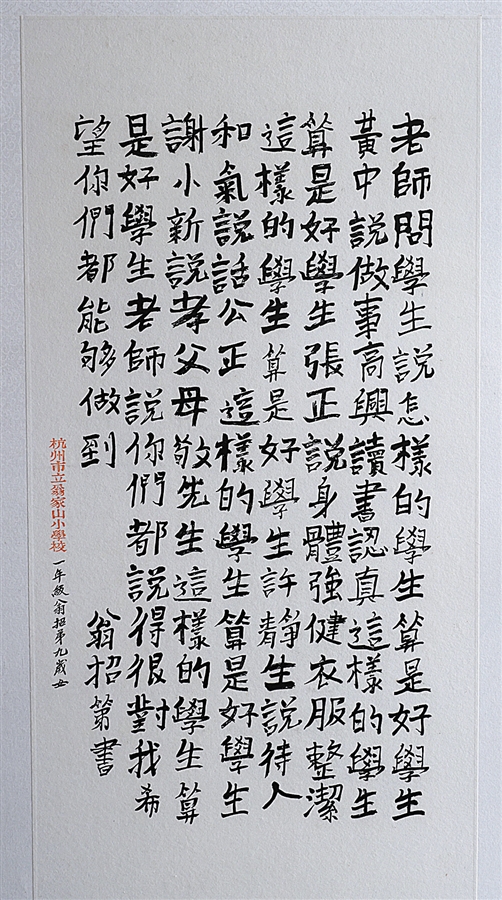 老師問學生說怎樣的學生算是好學生
黃中說做事高興讀書認真這樣的學生
算是好學生張正說身體強健衣服整潔
這樣的學生算是好學生許靜生說待人
和氣說話公正這樣的學生算是好學生
謝小新說孝父母敬先生這樣的學生算
是好學生老師說你們都說得很對我希
望你們都能够做到
翁招第書
杭州市立翁家山小學校 一年級翁招弟九歲女